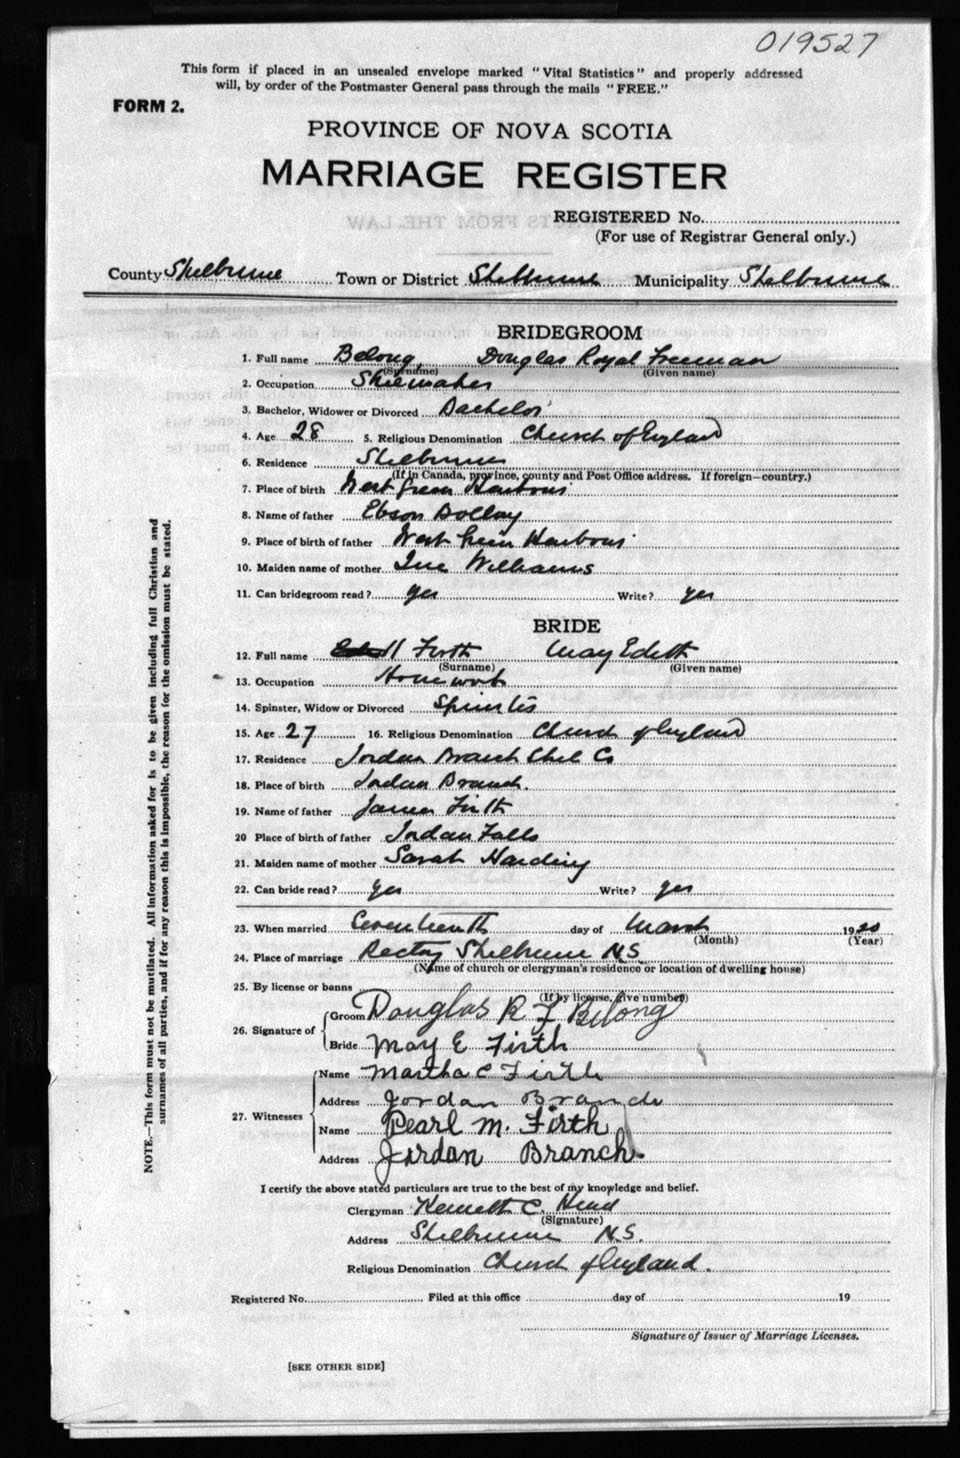 019527
This form if placed in an unsealed envelope marked "Vital Statistics" and properly addressed
will, by order of the Postmaster General pass through the mails "FREE."
FORM 2.
PROVINCE OF NOVA SCOTIA
MARRIAGE REGISTER
REGISTERED No.
(For use of Registrar General only.)
County Shelburne Town or District Shelburne Municipality Shelburne
BRIDEGROOM
1. Full name Belong Douglas Royal Freeman
(Surname) (Given name)
2. Occupation
3. Bachelor, Widower or Divorced Bachelor
4. Age 28 5. Religious Denomination Church of England
6. Residence Shelburne
(If in Canada, province, county and Post Office address. If foreign—country.)
7. Place of birth West Green Harbour
8. Name of father Ebson
9. Place of birth of father West Green Harbour
10. Maiden name of mother Williams
11. Can bridegroom read? yes Write? yes
BRIDE
12. Full name Firth May Edith
(Surname) (Given name)
13. Occupation Housework
14. Spinster, Widow or Divorced Spinster
15. Age 27 16. Religious Denomination Church of England
17. Residence Jordan Branch Shel Co
18. Place of birth Jordan Branch.
19. Name of father James Firth
20 Place of birth of father Jordan Falls
21. Maiden name of mother Sarah Harding
22. Can bride read? yes Write? yes
23. When married Seventeenth day of March 1920
(Month) (Year)
24. Place of marriage Rectory Shelburne N.S.
(Name of church or clergyman's residence or location of dwelling house)
25. By license or banns
(If by license, give number)
26. Signature of
Groom Douglas R F Belong
Bride May E Firth
27. Witnesses
Name Martha C Firth
Address Jordan Branch
Name Pearl M. Firth
Address Jordan Branch.
I certify the above stated particulars are true to the best of my knowledge and belief.
Clergyman Kenneth C. Hind
(Signature)
Address Shelburne N.S.
Religious Denomination Church of England.
Registered No. Filed at this office day of 19
Signature of Issuer of Marriage Licenses.
[SEE OTHER SIDE]
NOTE.—This form must not be mutilated. All information asked for is to be given including full Christian and
surnames of all parties, and if for any reason this is impossible, the reason for the omission must be stated.